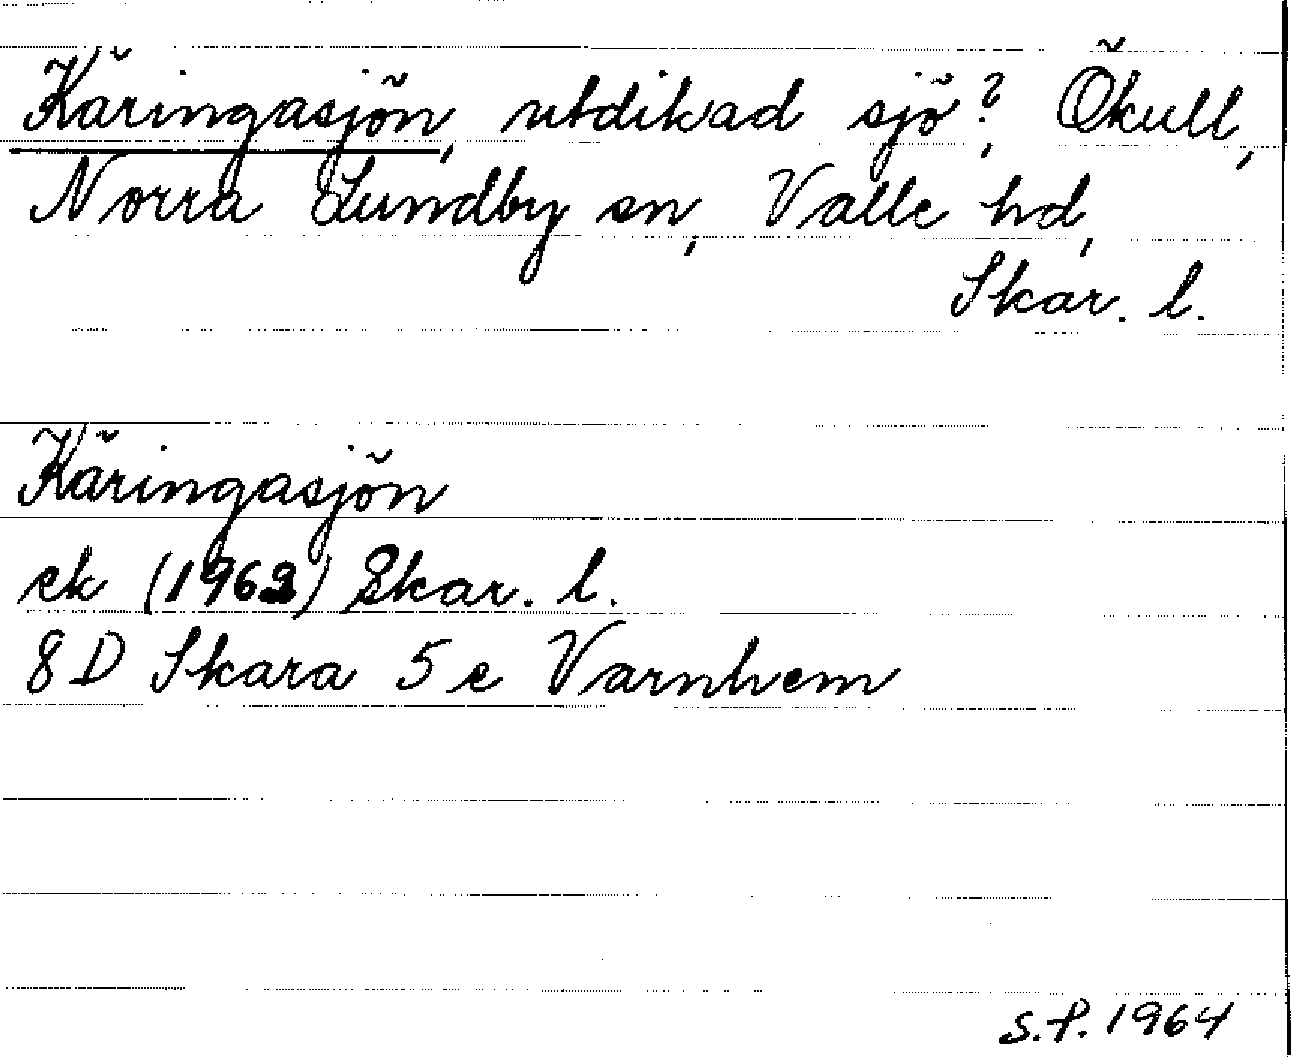 Käringasjön, utdikad sjö?, Ökull,
Norra Lundby sn, Valle hd,
Skar. l.
Käringasjön
ek (1962) Skar. l.
8D Skara 5e Varnhem
S.P. 1964